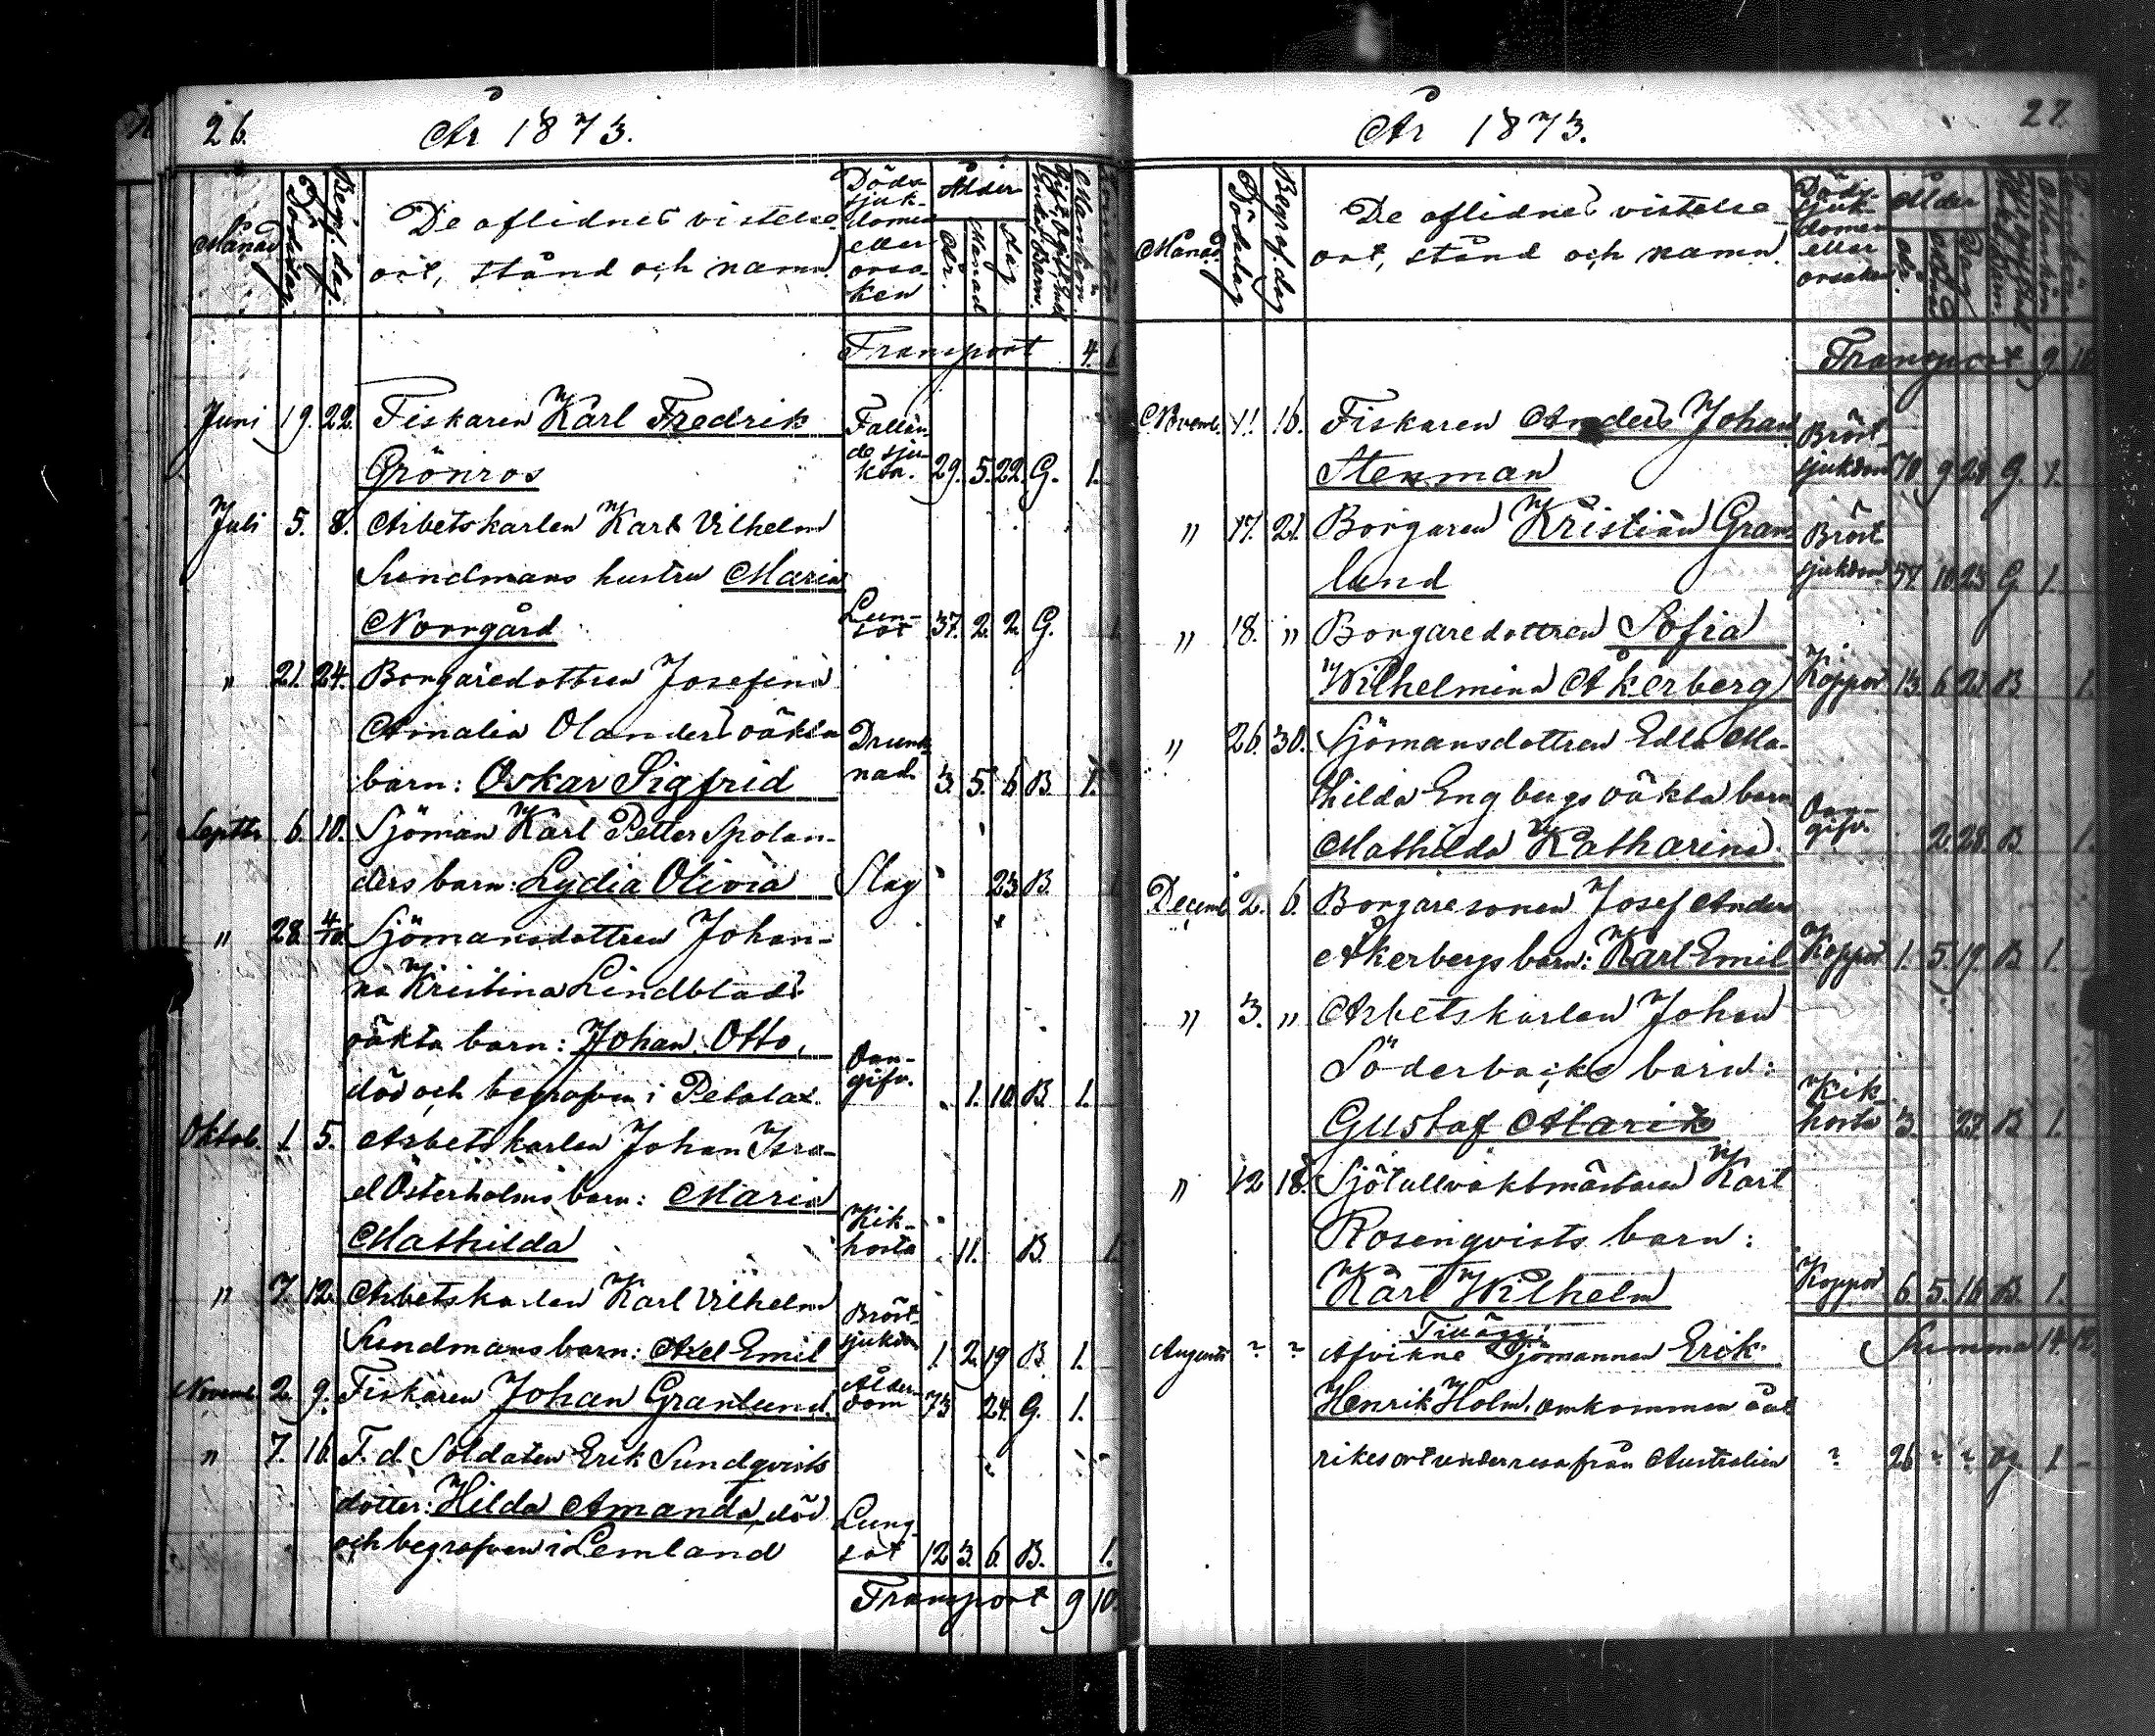 26.
År 1873.
Månad
Dödsdag.
Begrf. dag.
De aflidnes vistelse-
ort, stånd och namn.
Döds-
sjuk-
domen
eller
orsa-
ken
Ålder
År.
Månad
Dag
Mankön.
Transport 4. 6
Juni 19. 22. Fiskaren Karl Fredrik
Grönros
Fallan-
de sju-
kan. 29. 5. 22. G. 1.
Juli 5. 8. Arbetskarlen Karl Vilhelm
Sundmans hustru Maria
Norrgård
Lun-
sot 37. 2. 2. G. 1
" 21. 24. Borgaredottren Josefina
Amalia Olanders oäkta
barn: Oskar Sigfrid
Drunk-
nad 3. 5. 6. B. 1.
Septbr 6. 10. Sjöman Karl Petter Spolan-
ders barn: Lydia Olivia Slag 23 B. 1
" 28. 4/10. Sjömansdottren Johan-
na Kristina Lindblads
oäkta barn: Johan Otto,
död och begrafven i Petalax.
Oan-
gifv. 1. 10. B. 1.
Oktob. 1. 5. Arbetskarlen Johan Isra-
el Österholms barn: Maria
Mathilda
Kik-
hosta 11. B. 1.
" 7. 12. Arbetskarlen Karl Vilhelm
Sundmans barn: Axel Emil
Bröst-
sjukdom 1. 2. 19 B. 1.
Novemb. 2. 9. Fiskaren Johan Granlund.
Ålder-
dom 73 24. G. 1.
" 7. 16. F. d. Soldaten Erik Sundqvists
dotter: Hilda Amanda, död
och begrafven i Lemland
Lung-
sot 12 3. 6. B. 1.
Transport 9 10.
27
År 1873.
Månad.
Dödsdag
Begraf. dag
De aflidnes vistelse-
ort, stånd och namn.
Döds-
sjuk-
domen
eller
orsaken
Ålder
År.
Dag
Mankön
Transport 9 10
Novemb. 11. 16. Fiskaren Anders Johan
Stenman
Bröst-
sjukdom 70. 9 28 G. 1.
" 17. 21. Borgaren Kristian Gran-
lund
Bröst
sjukdom 57. 10 23 G 1.
" 18. " Borgaredottren Sofia
Wilhelmina Åkerberg Koppor 13. 6 21. B 1.
" 26. 30. Sjömansdottren Edla Ma-
thilda Engbergs oäkta barn
Mathilda Katharina.
Oan-
gifv. 2. 28. B 1.
Decemb. 2. 6. Borgaresonen Josef Anders
Åkerbergs barn: Karl Emil Koppor 1. 5. 19. B 1.
" 3. " Arbetskarlen Johan
Söderbacks barn:
Gustaf Alarik
Kik-
hosta 3. 27. B 1.
" 12 18. Sjötullvaktmästaren Karl
Rosenqvists barn:
Karl Wilhelm Koppor 6. 5. 16 B. 1.
Summa 14. 12.
Augusti ? ? Afvikne Sjömannen Erik
Henrik Holm, omkommen å ut-
rikes ort under resa från Australien ? 26 ? ? Og 1 -